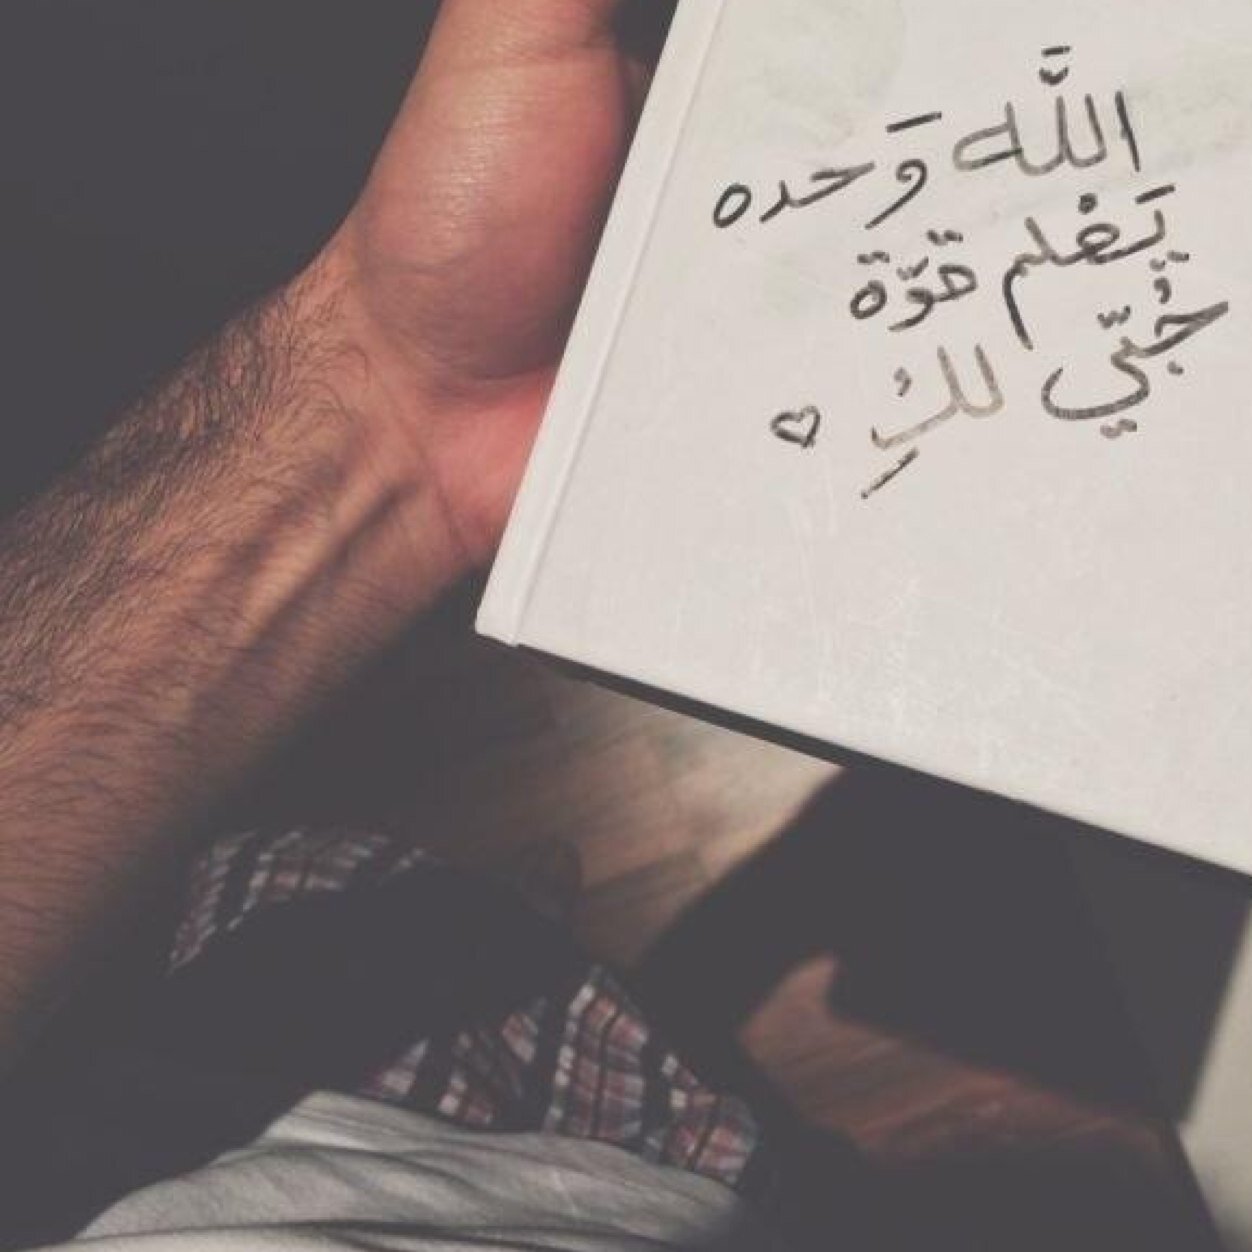 اللَّه وَحده
يَعْلم قوَّة
حُبّي لكِ ♡